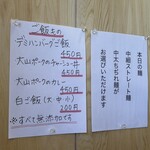 ご飯もの
デミハンバーグご飯
450円
大山ポークのチャーシュー丼
450円
大山ポークのカレー
450円
白ご飯(大・中・小)
200円
※すべて無添加です
本日の麺
中細ストレート麺
中太ちぢれ麺が
お選びいただけます